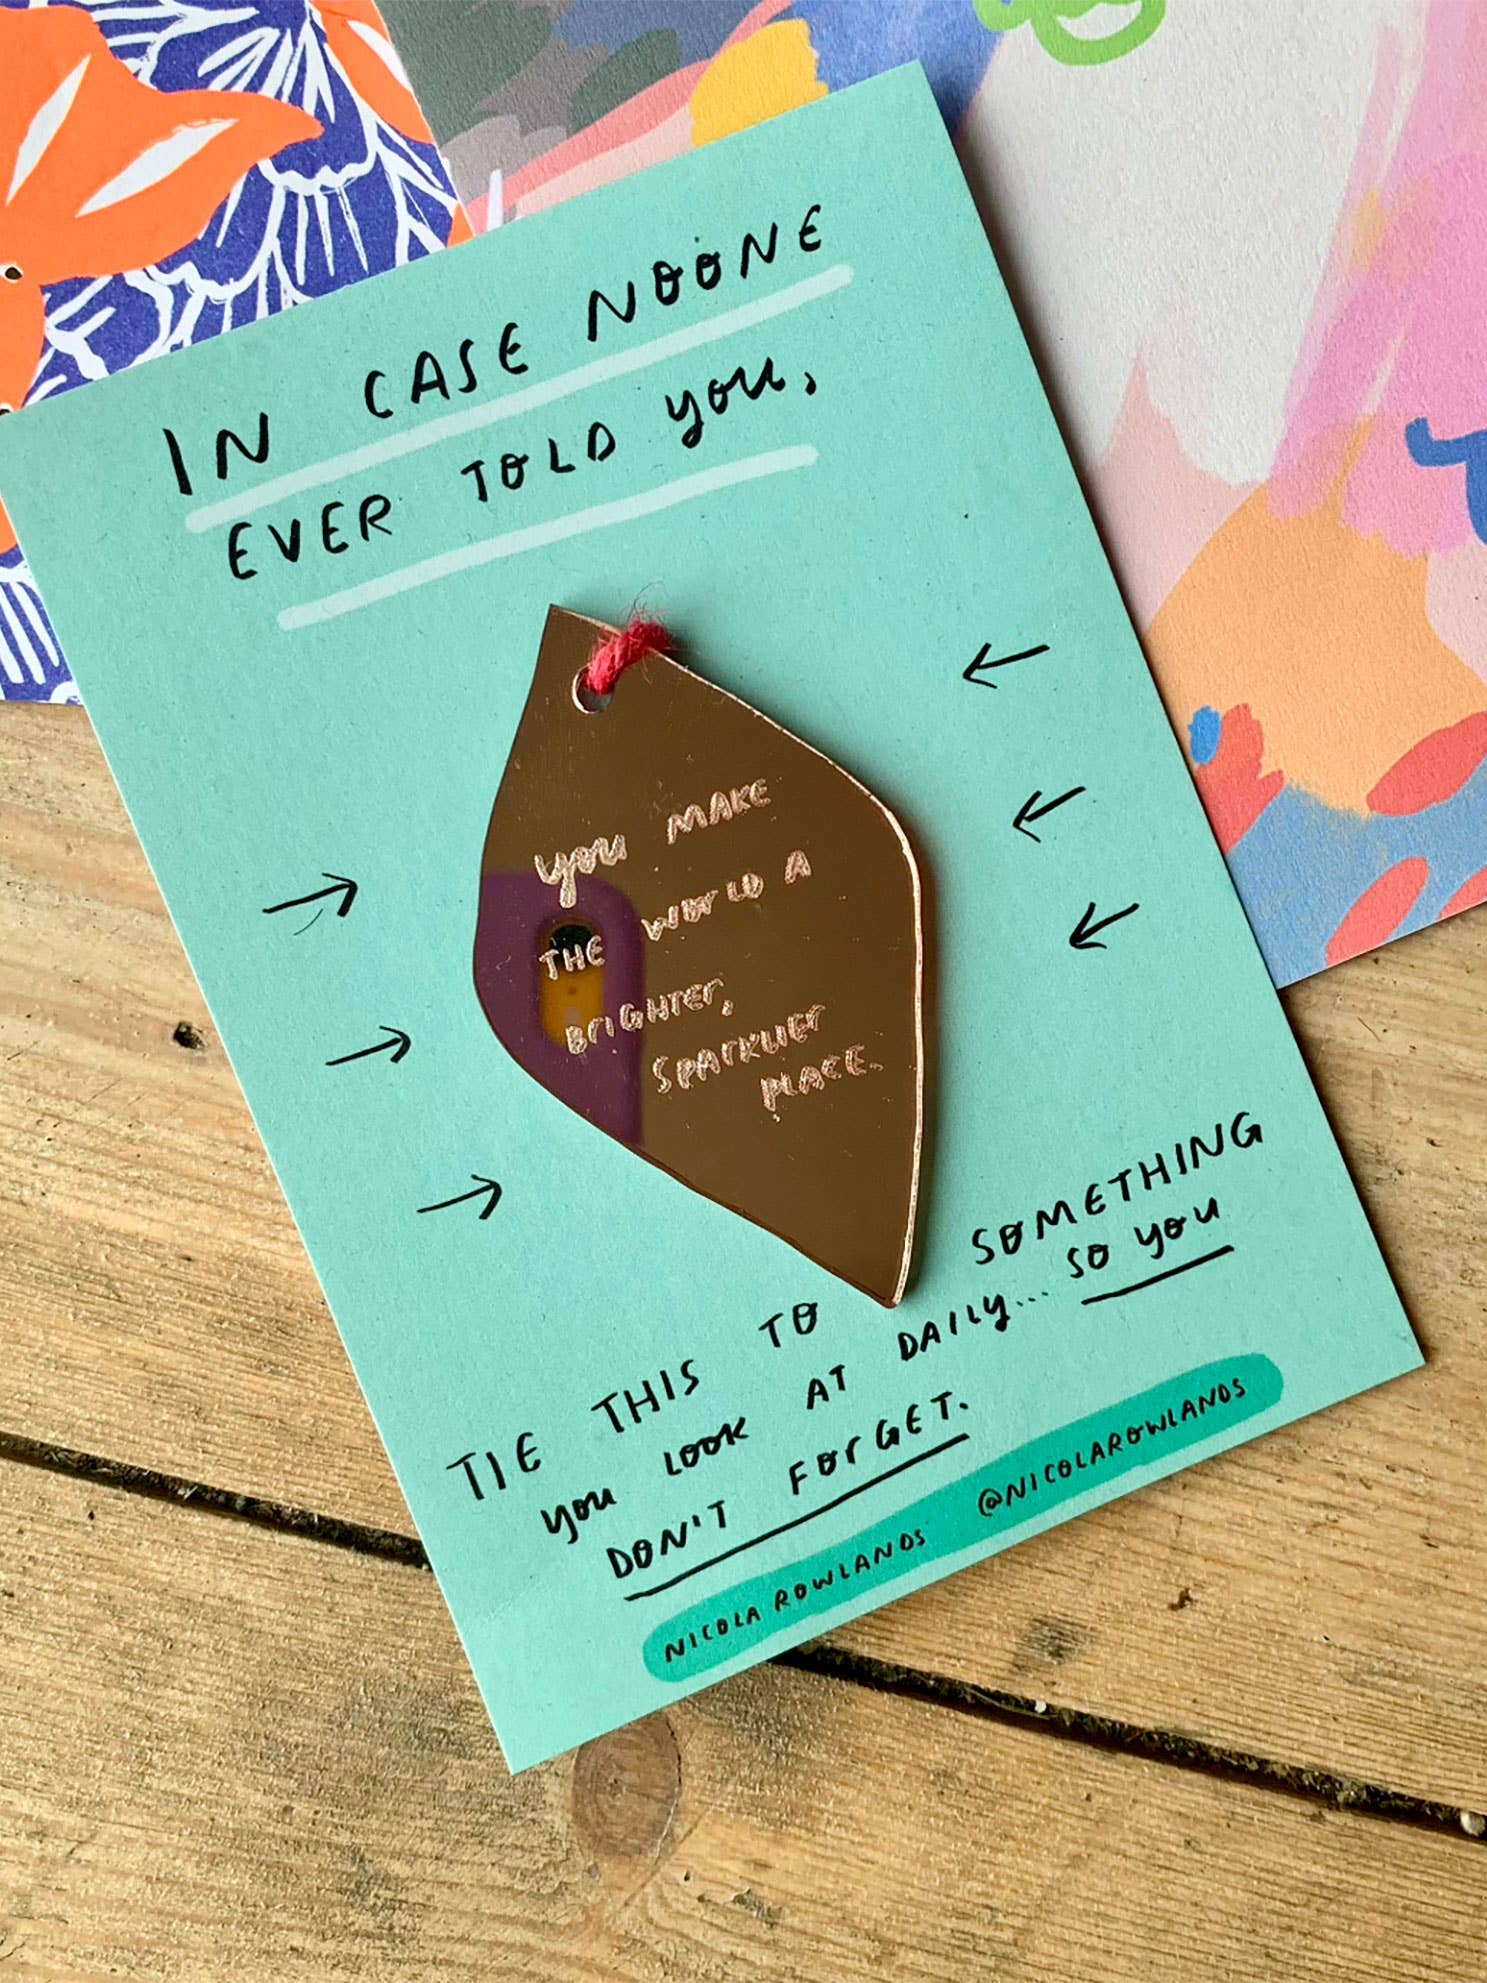 IN CASE NOONE
EVER TOLD you,
you MAKE
THE WORLD A
BRIGHTER,
SPARKLIER
PLACE.
TIE THIS TO SOMETHING
you LOOK AT DAILY... SO YOU
DON'T FORGET.
NICOLA ROWLANDS @NICOLAROWLANDS